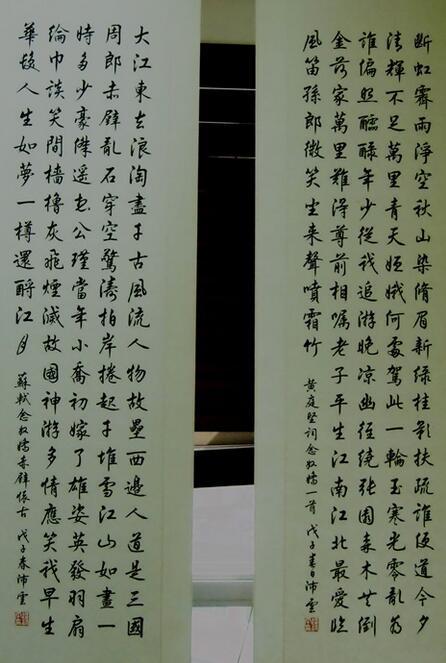 断虹霽雨淨空秋山染脩眉新綠桂影扶疏誰便道今夕
清輝不足萬里青天姮娥何處駕此一輪玉寒光零亂為
誰偏照醽醁年少從我追游晚凉幽徑繞張園森木共倒
金荷家萬里難得尊前相嘱老子平生江南江北最愛臨
風笛孫郎微笑坐来聲噴霜竹
黄庭堅詞念奴嬌一首 戊子春日沛雲
大江東去浪淘盡千古風流人物故壘西邊人道是三國
周郎赤壁亂石穿空驚濤拍岸捲起千堆雪江山如畫一
時多少豪傑遥想公瑾當年小喬初嫁了雄姿英發羽扇
綸巾談笑間檣櫓灰飛煙滅故國神游多情應笑我早生
華髮人生如夢一樽還酹江月
蘇軾念奴嬌赤壁懷古 戊子春沛雲